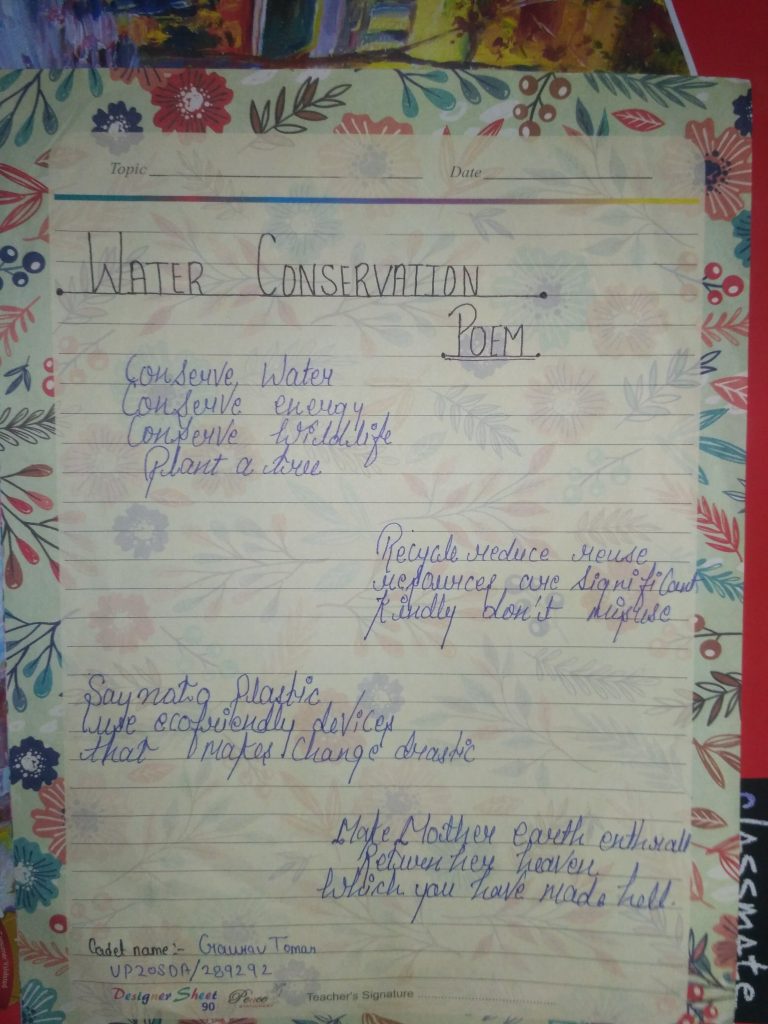 Topic
Date
WATER CONSERVATION
POEM
Conserve Water
Conserve energy
Conserve Wildlife
Plant a tree
Recycle reduce reuse
resources are significant
Kindly don't misuse
Say not a Plastic
use ecofriendly devices
that makes change drastic
Make Mother earth enthrall
Return her heaven
Which you have made hell.
Cadet name:- Gaurav Tomar
UP20SDA/289292
Designer Sheet
90
Teacher's Signature
classmate